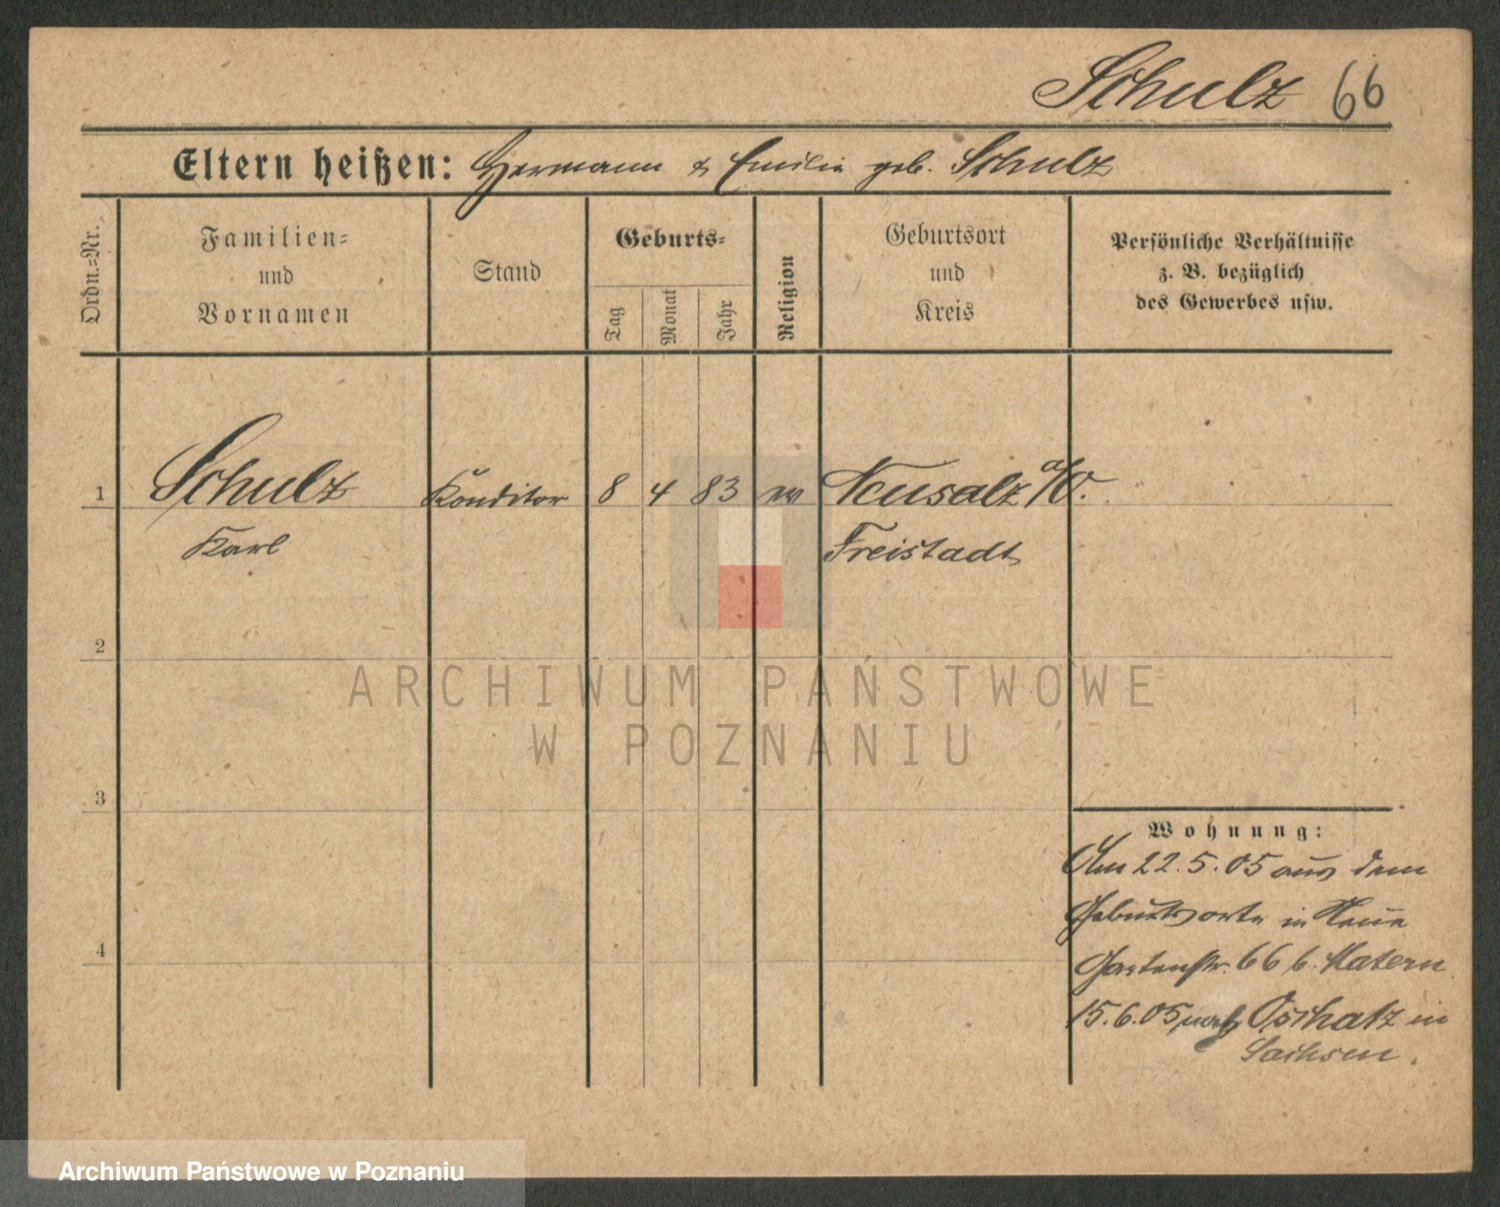 Schulz 66
Eltern heißen: Hermann & Emilie geb. Schulz
Ordn.-Nr.
Familien-
und
Vornamen
Stand
Geburts-
Tag
Monat
Jahr
Religion
Geburtsort
und
Kreis
Persönliche Verhältnisse
z. B. bezüglich
des Gewerbes usw.
1 Schulz Konditor 8 4 83 ev Neusalz a/O.
Karl Freistadt
2
3
4
Wohnung:
Am 22.5.05 aus dem
Geburtsorte in Neue
Gartenstr. 66 b. Matern
15.6.05 nach Oschatz in
Sachsen.
ARCHIWUM PAŃSTWOWE
W POZNANIU
Archiwum Państwowe w Poznaniu